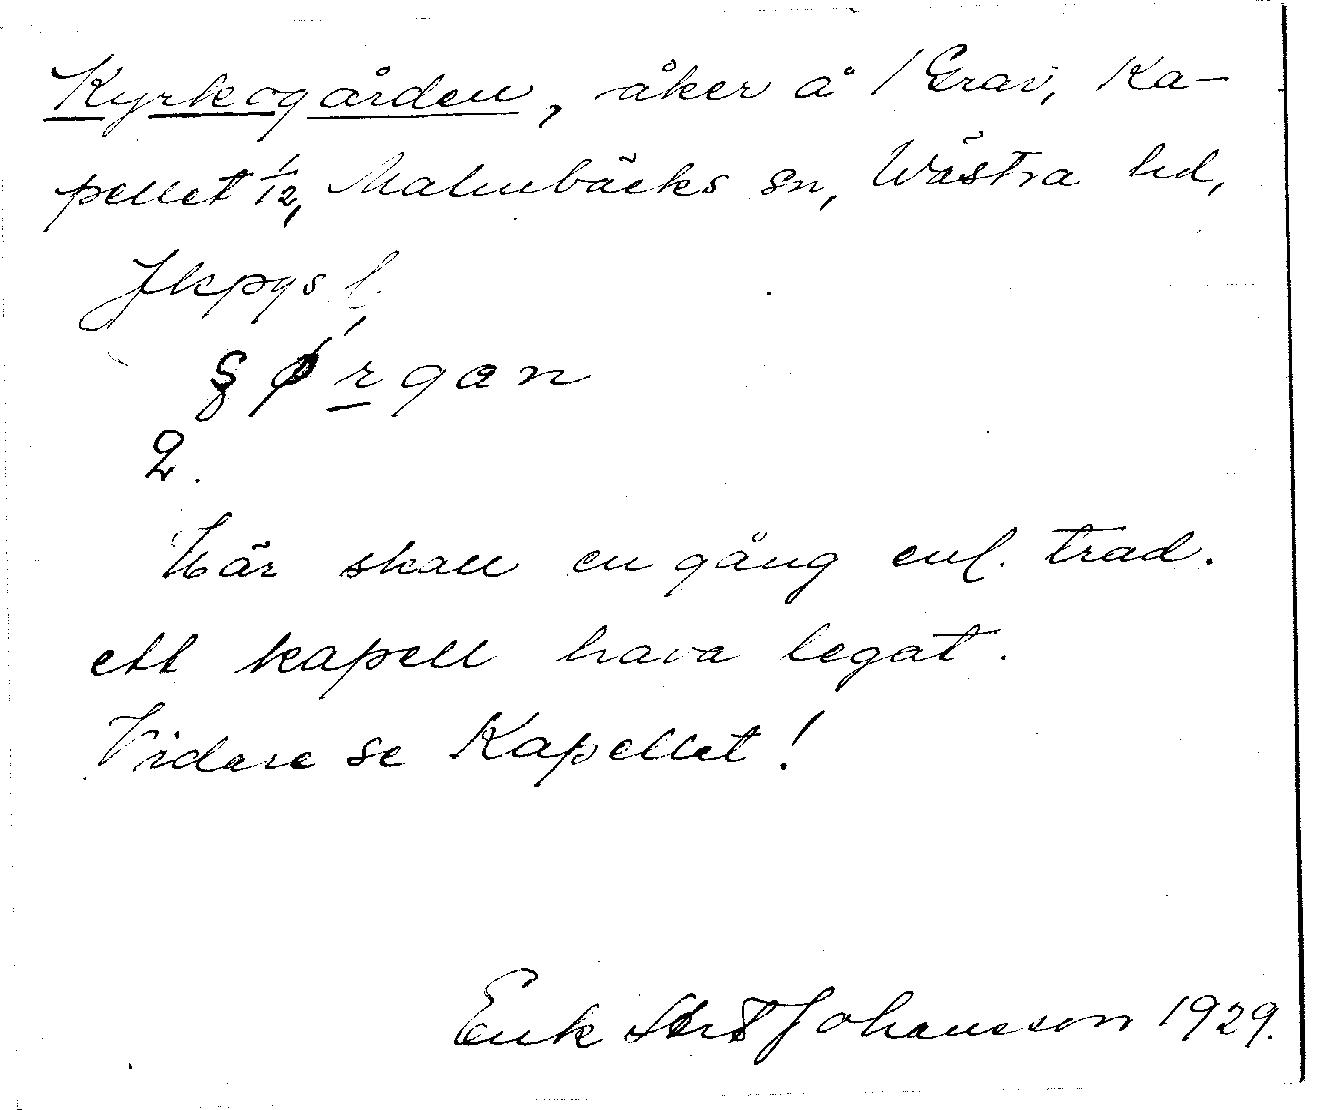 Kyrkogården, åker å 1 Grav, Ka-
pellet 1/12, Malmbäcks sn, Västra hd,
Jkpgs l.
2.
Här skall en gång enl. trad.
ett kapell hava legat.
Vidare se Kapellet!
Johansson 1929.